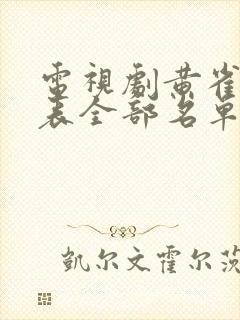 電視劇黃雀
表全部名單
凱尔文霍尔茨